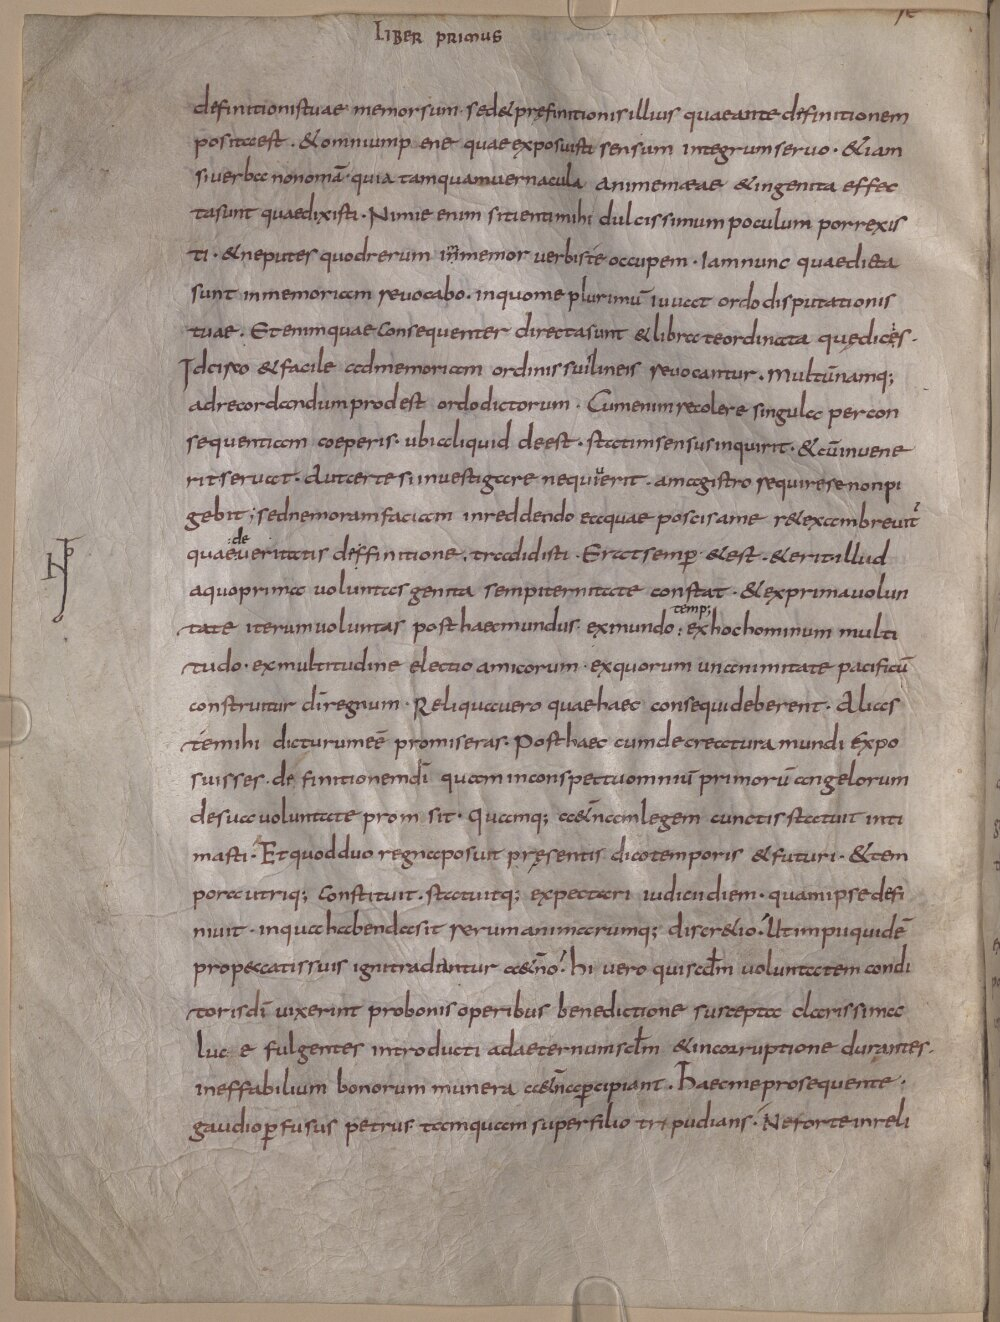 Liber primus
definitionis tuae memor sum. sed & pręfinitionis illius quae ante definitionem
posita est. & omnium pene quae exposuisti sensum integrum servo. & iam
si verba non omā. quia tamquam vernacula animę meae & ingenita effec
ta sunt quae dixisti. Nimie enim sitienti mihi dulcissimum poculum porrexis
ti. & ne putes quod rerum inmemor verbis te occupem. Iam nunc quae dicta
sunt in memoriam revocabo. in quo me plurimū iuvat ordo disputationis
tuae. Et enim quae consequenter directa sunt & librate ordinata quę dicēs.
Idcirco & facile ad memoriam ordinis sui lineis revocantur. Multū namq;
ad recordandum prodest ordo dictorum. Cum enim recolere singula per con
sequentiam coeperis. ubi aliquid deest. statim sensus inquirit. & cū invene
rit servat. Aut certe si investigare nequiverit. a magistro requirere non pi
gebit; sed ne moram faciam in reddendo ea quae poscis a me r&exam brevit
quae de veritatis deffinitione. tradidisti. Erat semp̄ & est. & erit illud
a quo prima voluntas genita sempiternitate constat. & ex prima volun
tate iterum voluntas post haec mundus. ex mundo: temp; ex hoc hominum multi
tudo. ex multitudine electio amicorum. ex quorum unanimitate pacificū
construitur dī regnum. Reliqua vero quae haec consequi deberent. Alias
te mihi dicturum eē promiseras. Post haec cum de creatura mundi expo
suisses. definitionem dī quam in conspectu omniū primorū angelorum
de sua voluntate promsit. Quamq; a&̄nam legem cunctis statuit inti
masti. Et quod duo regna posuit pręsentis dico temporis & futuri. & tem
pora utriq; constituit. statuitq; expectari iudicii diem. quam ipse defi
nivit. in qua habenda sit rerum animarumq; discr&io. Ut impii quidē
pro peccatis suis igni tradantur a&̄no. hi vero qui scdm voluntatem condi
toris dī vixerint pro bonis operibus benedictione suscepta clarissima
luce fulgentes introducti ad aeternum sclm & incorruptione durantes.
ineffabilium bonorum munera a&̄na p̄cipiant. Haec me prosequente.
gaudio p̄fusus petrus tamquam super filio tripudians. Ne forte in reli